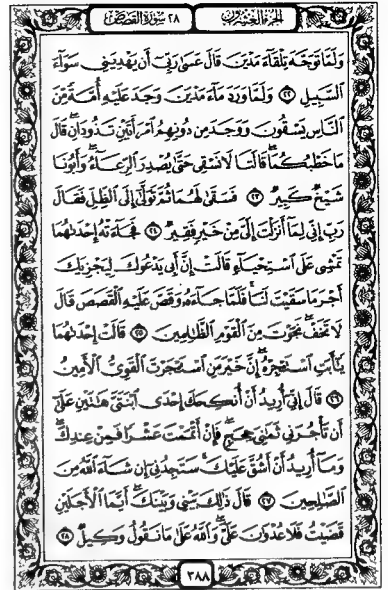 الجزء العشرون ٢٨ سورة القصص
وَلَمَّا تَوَجَّهَ تِلْقَآءَ مَدْيَنَ قَالَ عَسَىٰ رَبِّىٓ أَن يَهْدِيَنِى سَوَآءَ
ٱلسَّبِيلِ ٢٢ وَلَمَّا وَرَدَ مَآءَ مَدْيَنَ وَجَدَ عَلَيْهِ أُمَّةً مِّنَ
ٱلنَّاسِ يَسْقُونَ وَوَجَدَ مِن دُونِهِمُ ٱمْرَأَتَيْنِ تَذُودَانِ ۖ قَالَ
مَا خَطْبُكُمَا ۖ قَالَتَا لَا نَسْقِى حَتَّىٰ يُصْدِرَ ٱلرِّعَآءُ ۖ وَأَبُونَا
شَيْخٌ كَبِيرٌ ٢٣ فَسَقَىٰ لَهُمَا ثُمَّ تَوَلَّىٰٓ إِلَى ٱلظِّلِّ فَقَالَ
رَبِّ إِنِّى لِمَآ أَنزَلْتَ إِلَىَّ مِنْ خَيْرٍ فَقِيرٌ ٢٤ فَجَآءَتْهُ إِحْدَىٰهُمَا
تَمْشِى عَلَى ٱسْتِحْيَآءٍ قَالَتْ إِنَّ أَبِى يَدْعُوكَ لِيَجْزِيَكَ
أَجْرَ مَا سَقَيْتَ لَنَا ۚ فَلَمَّا جَآءَهُۥ وَقَصَّ عَلَيْهِ ٱلْقَصَصَ قَالَ
لَا تَخَفْ ۖ نَجَوْتَ مِنَ ٱلْقَوْمِ ٱلظَّٰلِمِينَ ٢٥ قَالَتْ إِحْدَىٰهُمَا
يَٰٓأَبَتِ ٱسْتَـْٔجِرْهُ ۖ إِنَّ خَيْرَ مَنِ ٱسْتَـْٔجَرْتَ ٱلْقَوِىُّ ٱلْأَمِينُ
٢٦ قَالَ إِنِّىٓ أُرِيدُ أَنْ أُنكِحَكَ إِحْدَى ٱبْنَتَىَّ هَٰتَيْنِ عَلَىٰٓ
أَن تَأْجُرَنِى ثَمَٰنِىَ حِجَجٍ ۖ فَإِنْ أَتْمَمْتَ عَشْرًا فَمِنْ عِندِكَ ۖ
وَمَآ أُرِيدُ أَنْ أَشُقَّ عَلَيْكَ ۚ سَتَجِدُنِىٓ إِن شَآءَ ٱللَّهُ مِنَ
ٱلصَّٰلِحِينَ ٢٧ قَالَ ذَٰلِكَ بَيْنِى وَبَيْنَكَ ۖ أَيَّمَا ٱلْأَجَلَيْنِ
قَضَيْتُ فَلَا عُدْوَٰنَ عَلَىَّ ۖ وَٱللَّهُ عَلَىٰ مَا نَقُولُ وَكِيلٌ ٢٨
٣٨٨